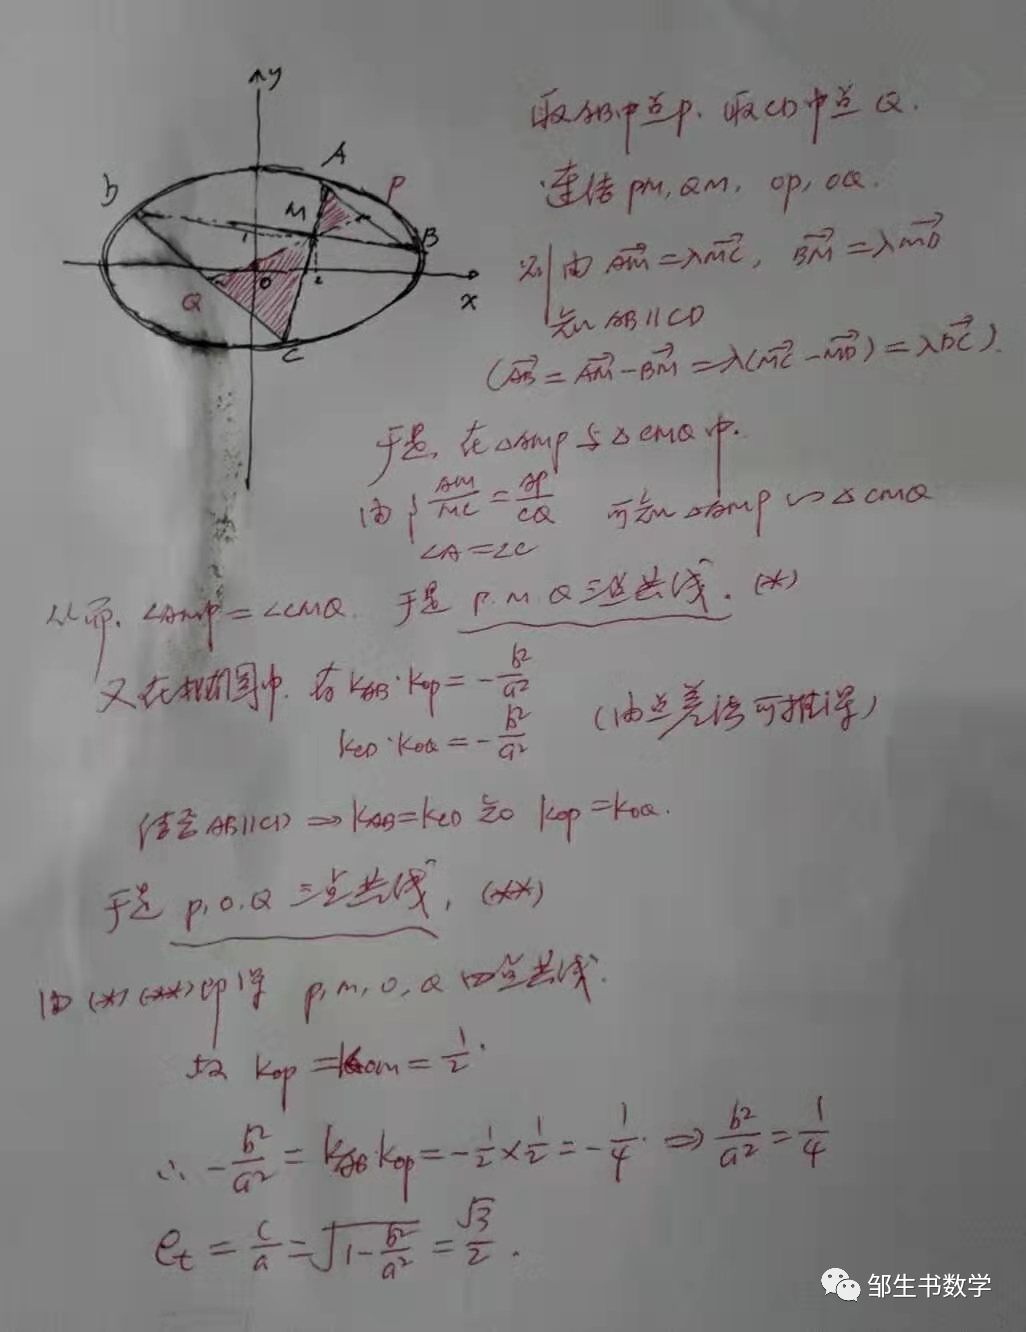 y
A
P
D
M
B
1
O
2
x
Q
C
取AB中点P.取CD中点Q.
连结PM,QM,OP,OQ.
则由$\overrightarrow{AM}=\lambda\overrightarrow{MC}$,$\overrightarrow{BM}=\lambda\overrightarrow{MD}$
知AB∥CD
($\overrightarrow{AB}=\overrightarrow{AM}-\overrightarrow{BM}=\lambda(\overrightarrow{MC}-\overrightarrow{MD})=\lambda\overrightarrow{DC}$).
于是,在△AMP与△CMQ中.
由{$\frac{AM}{MC}=\frac{AP}{CQ}$ 可知△AMP∽△CMQ
∠A=∠C
从而.∠AMP=∠CMQ. 于是 P.M.Q三点共线.(*)
又在椭圆中.有$k_{AB}\cdot k_{OP}=-\frac{b^2}{a^2}$
$k_{CD}\cdot k_{OQ}=-\frac{b^2}{a^2}$ (由点差法可推得)
结合AB∥CD⇒$k_{AB}=k_{CD}$知$k_{OP}=k_{OQ}$.
于是 P,O,Q三点共线,(**)
由(*)(**)即得 P,M,O,Q四点共线.
故 $k_{OP}=k_{OM}=\frac{1}{2}$.
∴$-\frac{b^2}{a^2}=k_{AB}\cdot k_{OP}=-\frac{1}{2}\times\frac{1}{2}=-\frac{1}{4}$.⇒$\frac{b^2}{a^2}=\frac{1}{4}$
$=\frac{c}{a}=\sqrt{1-\frac{b^2}{a^2}}=\frac{\sqrt{3}}{2}$.
邹生书数学